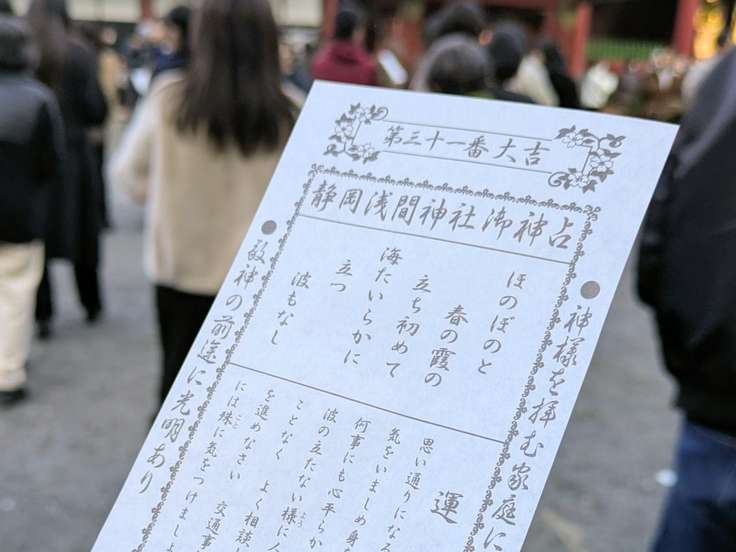 第三十一番大吉
静岡浅間神社御神占
神様を拝む家庭に
ほのぼのと
春の霞の
立ち初めて
海たいらかに
立つ
波もなし
運
思い通りになる
気をいましめ身
何事にも心平らか
波の立たない様に人
ことなく よく相談
を進めなさい 交通事
には殊に気をつけまし
敬神の前途に光明あり